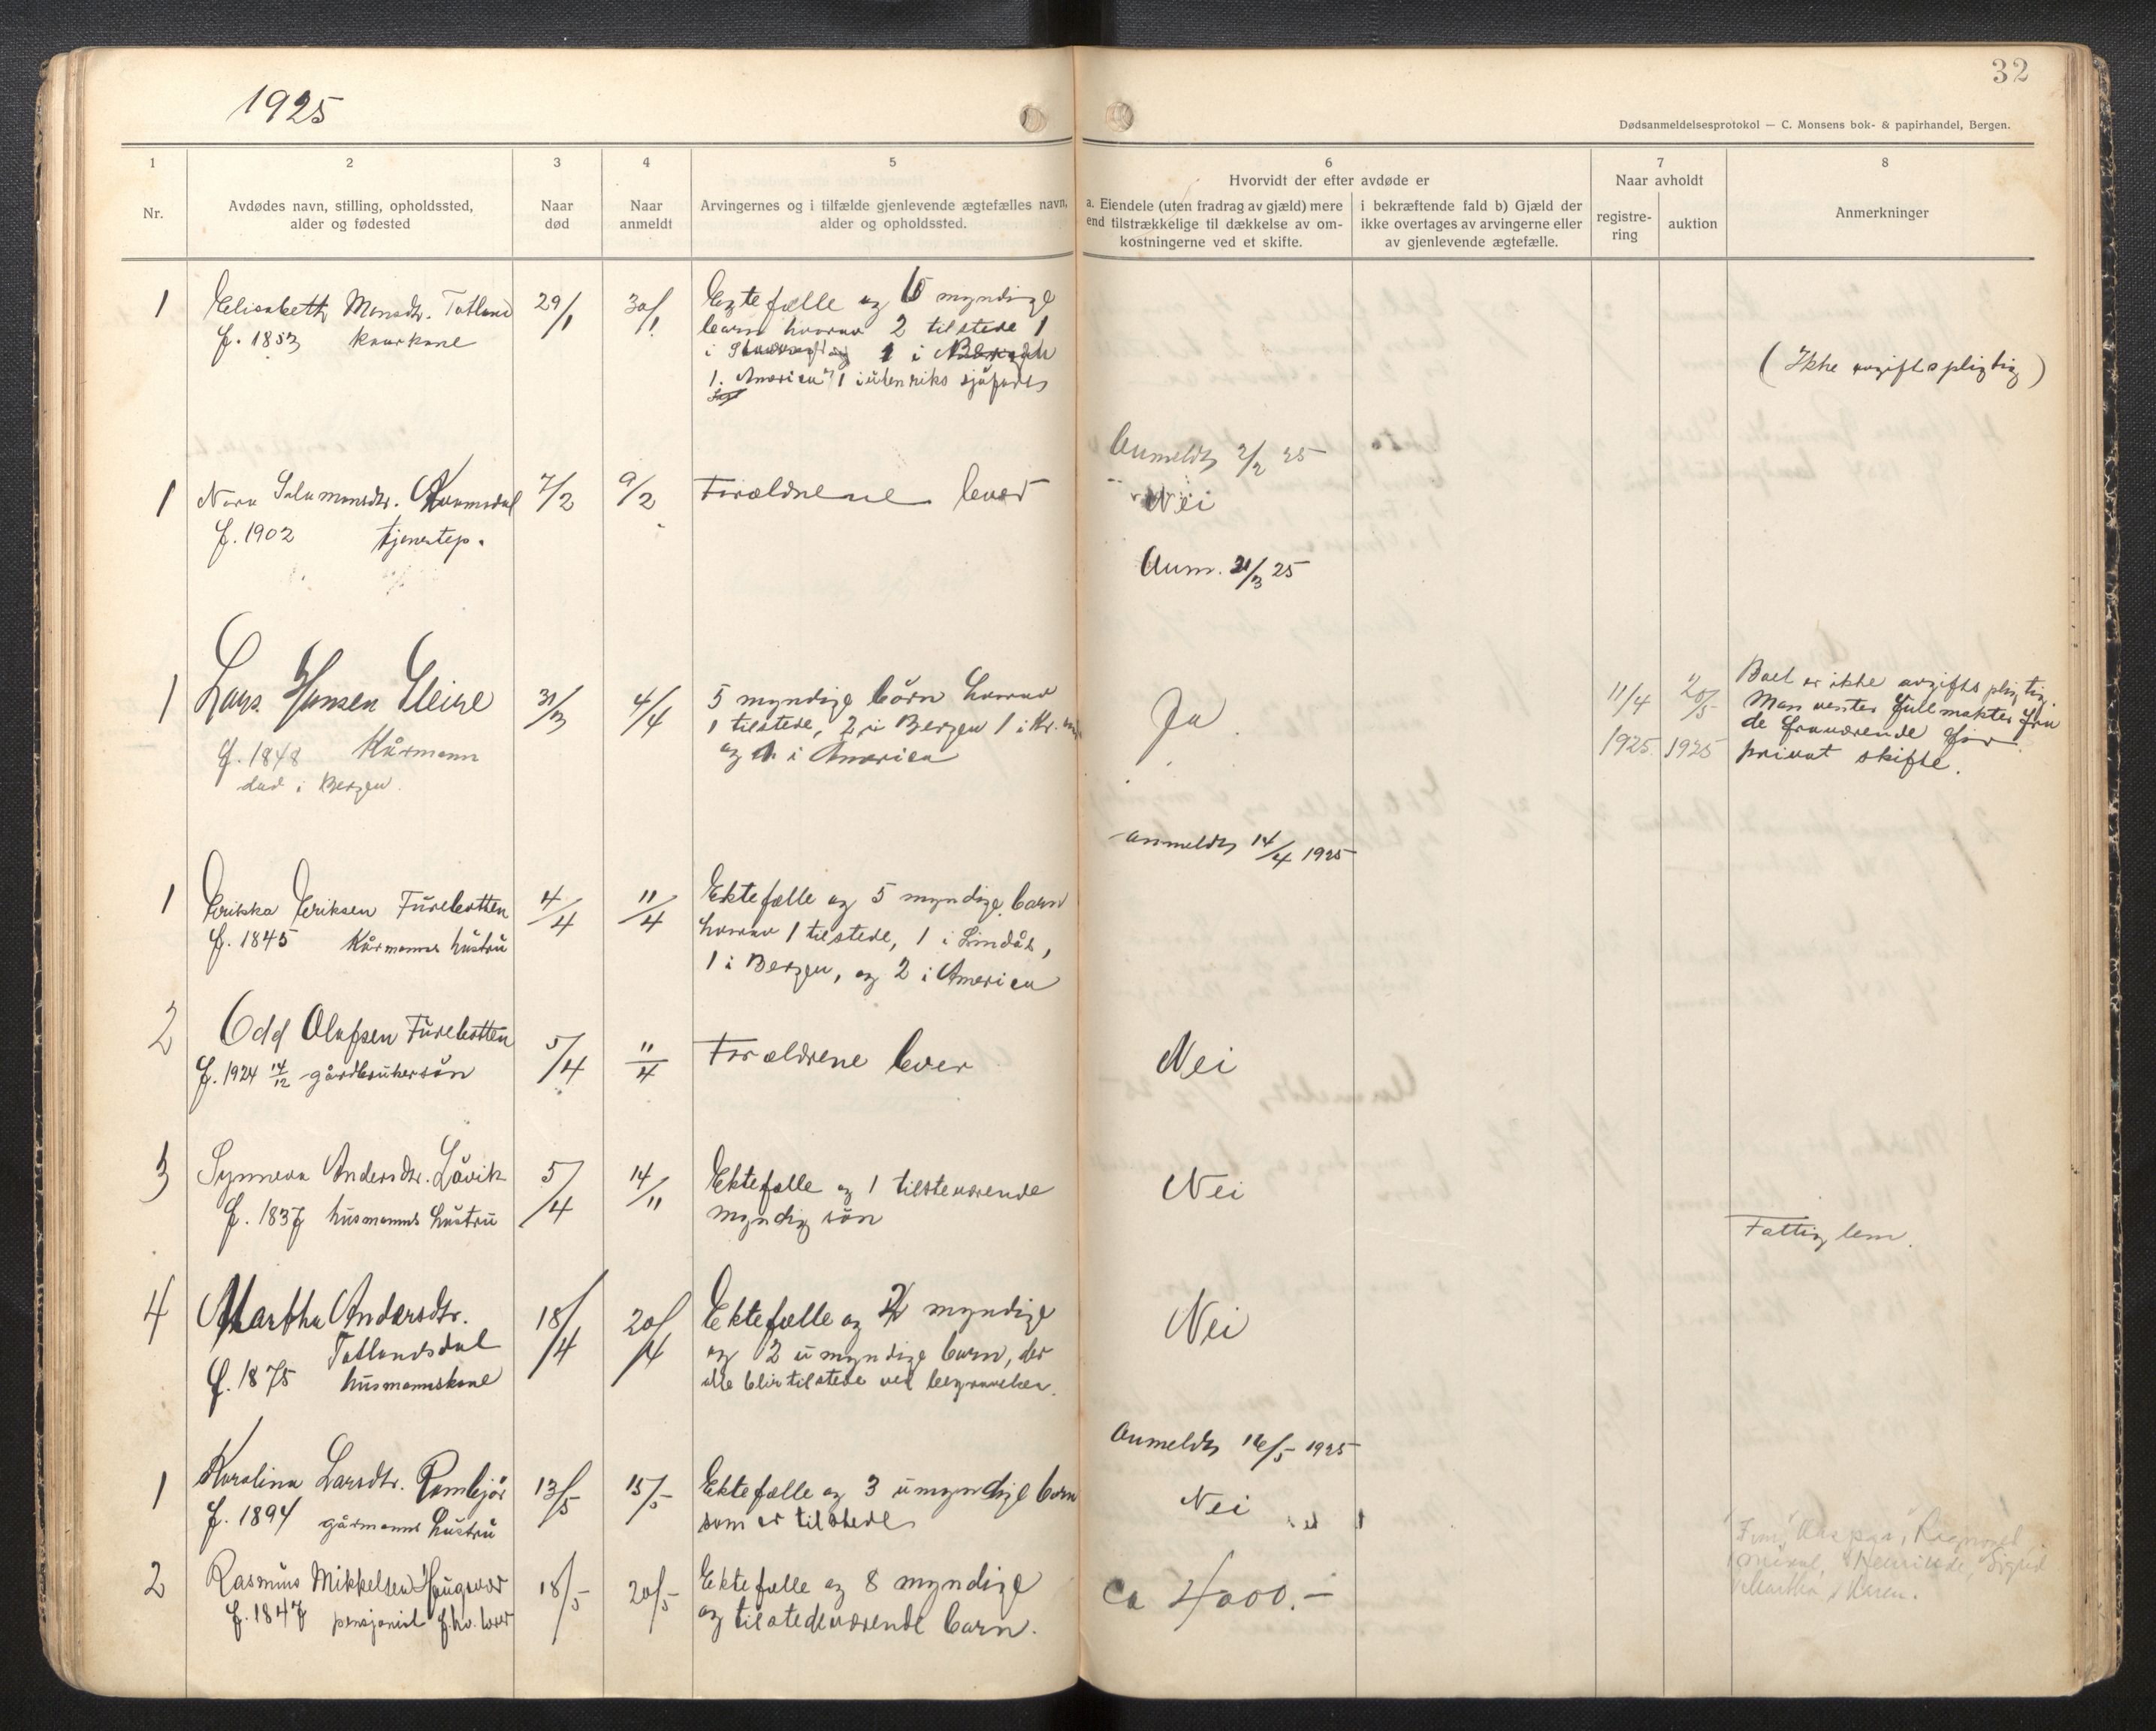 32
1925
Dødsanmeldelsesprotokol — C. Monsens bok- & papirhandel, Bergen.
1 2 3 4 5 6 7 8
Nr.
Avdødes navn, stilling, opholdssted,
alder og fødested
Naar
død
Naar
anmeldt
Arvingernes og i tilfælde gjenlevende ægtefælles navn,
alder og opholdssted.
Hvorvidt der efter avdøde er
a. Eiendele (uten fradrag av gjæld) mere
end tilstrækkelige til dækkelse av om-
kostningerne ved et skifte.
i bekræftende fald b) Gjæld der
ikke overtages av arvingerne eller
av gjenlevende ægtefælle.
Naar avholdt
registre-
ring
auktion
Anmerkninger
1 Elisabeth Monsdtr. Totland 29/1 30/1
f. 1853 kaarkone
Egtefælle og 6 myndige
barn hvorav 2 tilstede 1
i 1 i
1. America 1 i utenriks sjøfart
(Ikke avgiftspligtig)
Anmeldt 2/2 25
1 Nora Salamonsdtr. Kvamsdal 7/2 9/2 Forældrene lever Nei
f. 1902 tjenestep.
Anm. 31/3 25
1 Lars Hansen Sleire 31/3 4/4
f. 1848 Kårmann
død i Bergen.
5 myndige børn hvorav
1 tilstede, 2 i Bergen 1 i Kr.
og 1 i America
Ja
11/4 1925
20/5 1925
Boet er ikke avgiftspligtig.
Man venter fullmakter fra
de fraværende for
privat skifte.
anmeldt 14/4 1925
1 Erikka Eriksen Furebotten 4/4 11/4
f. 1845 Kårmanns hustru
Ektefælle og 5 myndige barn
hvorav 1 tilstede, 1 i Lindås,
1 i Bergen, og 2 i America
2 Odd Olafsen Furebotten 5/4 11/4 Forældrene lever Nei
f. 1924 14/12 gårdbrukersøn
3 Synneva Andersdtr. Låvik 5/4 14/11
f. 1837 husmanns hustru
Ektefælle og 1 tilsteværende
myndig søn
Nei
Fattiglem.
4 Martha Andersdtr. 18/4 20/4
Totlandsdal
f. 1875 husmannskone
Ektefælle og 2 myndige
og 2 umyndige barn, der
alle blir tilstede ved begravelsen.
Nei
Anmeldt 16/5 1925
1 Karolina Larsdtr. Rambjør 13/5 15/5
f. 1894 gårmanns hustru
Ektefælle og 3 umyndige barn
som er tilstede
Nei
2 Rasmus Mikkelsen Haugsvær 18/5 20/5
f. 1847 pensjonist f.hv. lærer
Ektefælle og 8 myndige
og tilstedeværende barn.
ca 4000.-
Ragnvald
Sigrid
Martha, Karen.